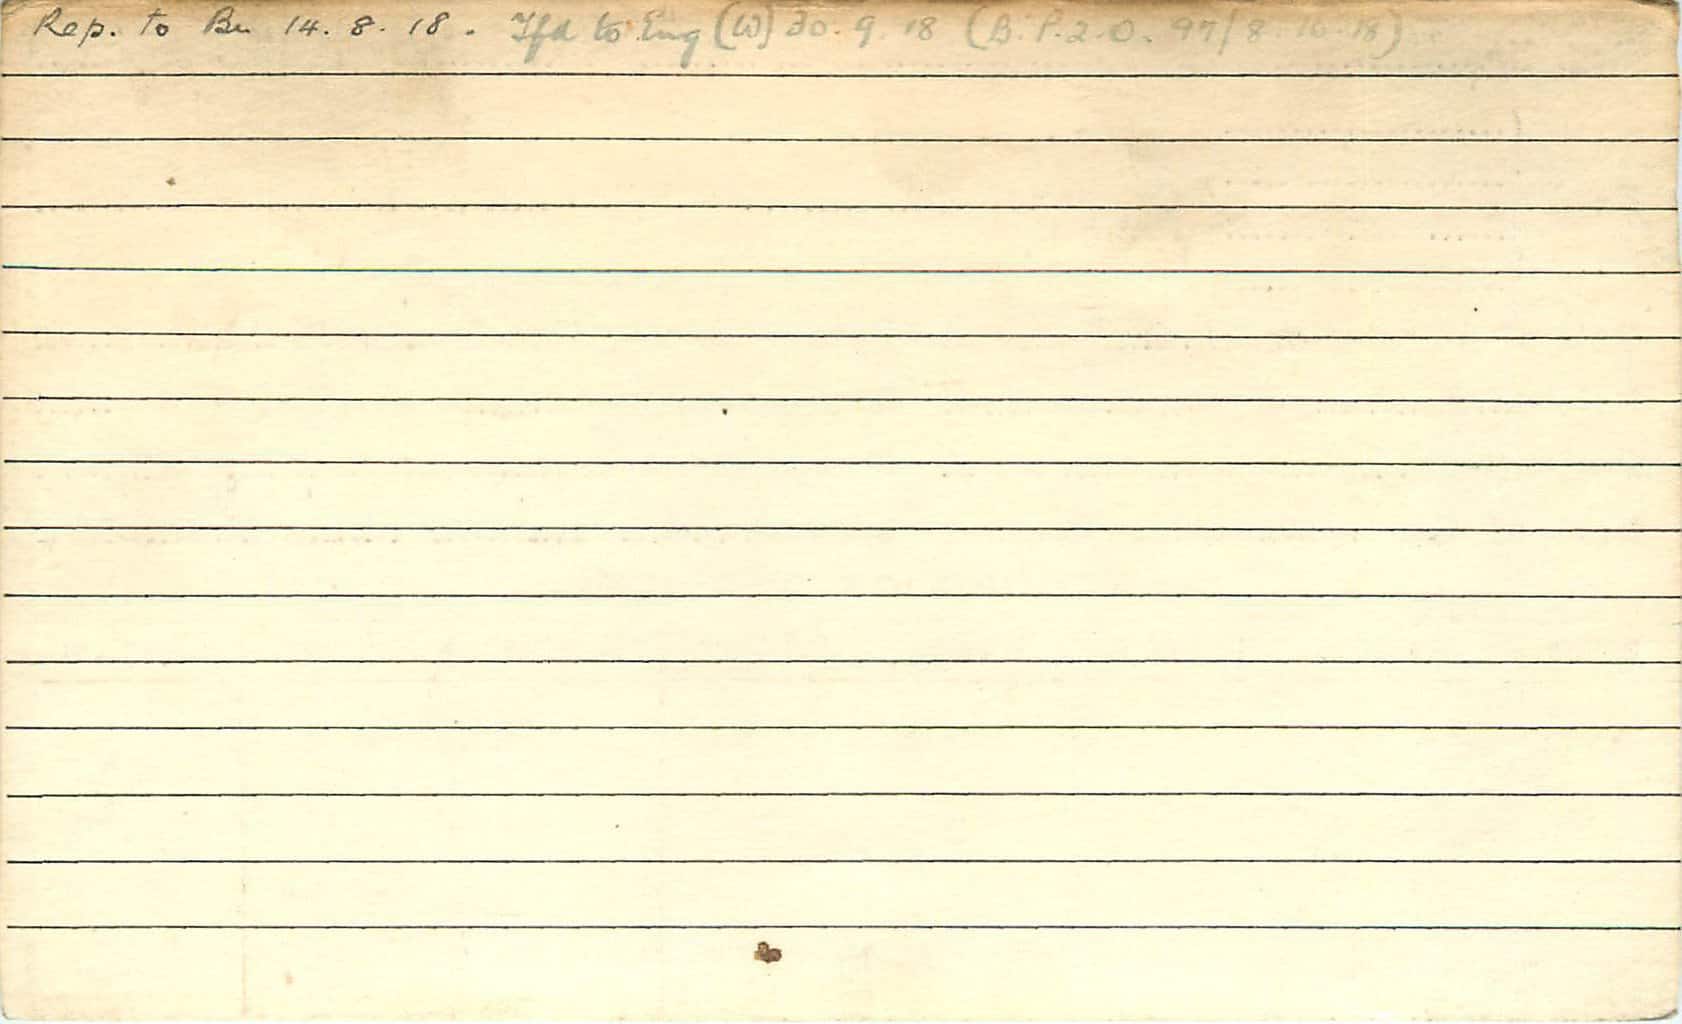 Rep. to Bn 14. 8. 18. Tfd to Eng (W) 30. 9. 18 (B. P.2.O. 97/8.10.18)